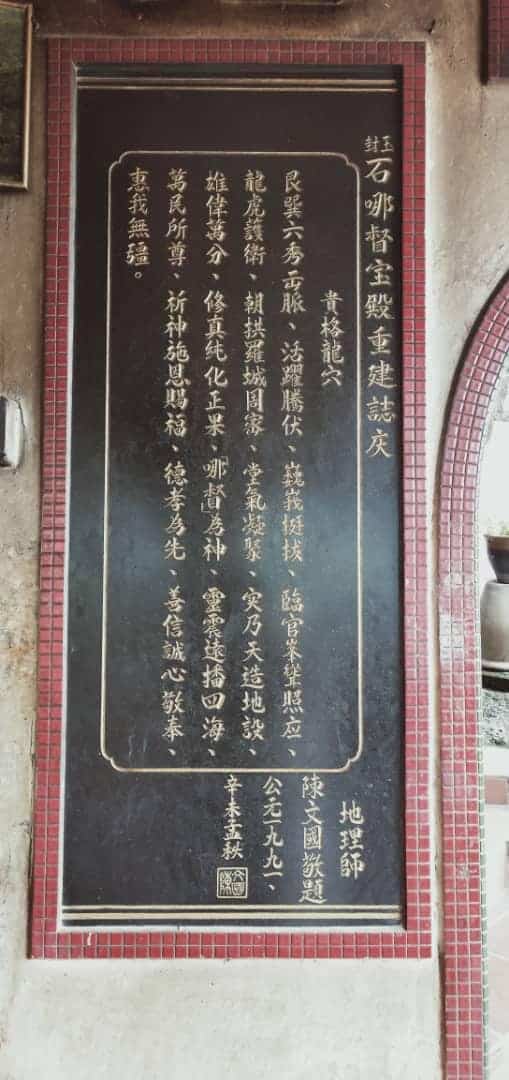 玉封石哪督宝殿重建誌庆
貴格龍穴
艮巽六秀雨脉、活躍騰伏、巍峩挺拔、臨官峯聳照应、
龍虎護衛、朝拱羅城周密、堂氣凝聚、实乃天造地設、
雄偉萬分、修真純化正果、「哪督」為神、靈震遠播四海、
萬民所尊、祈神施恩賜福、德孝為先、善信誠心敬奉、
惠我無疆。
地理師
陳文國敬題
公元一九九一、
辛未孟秋